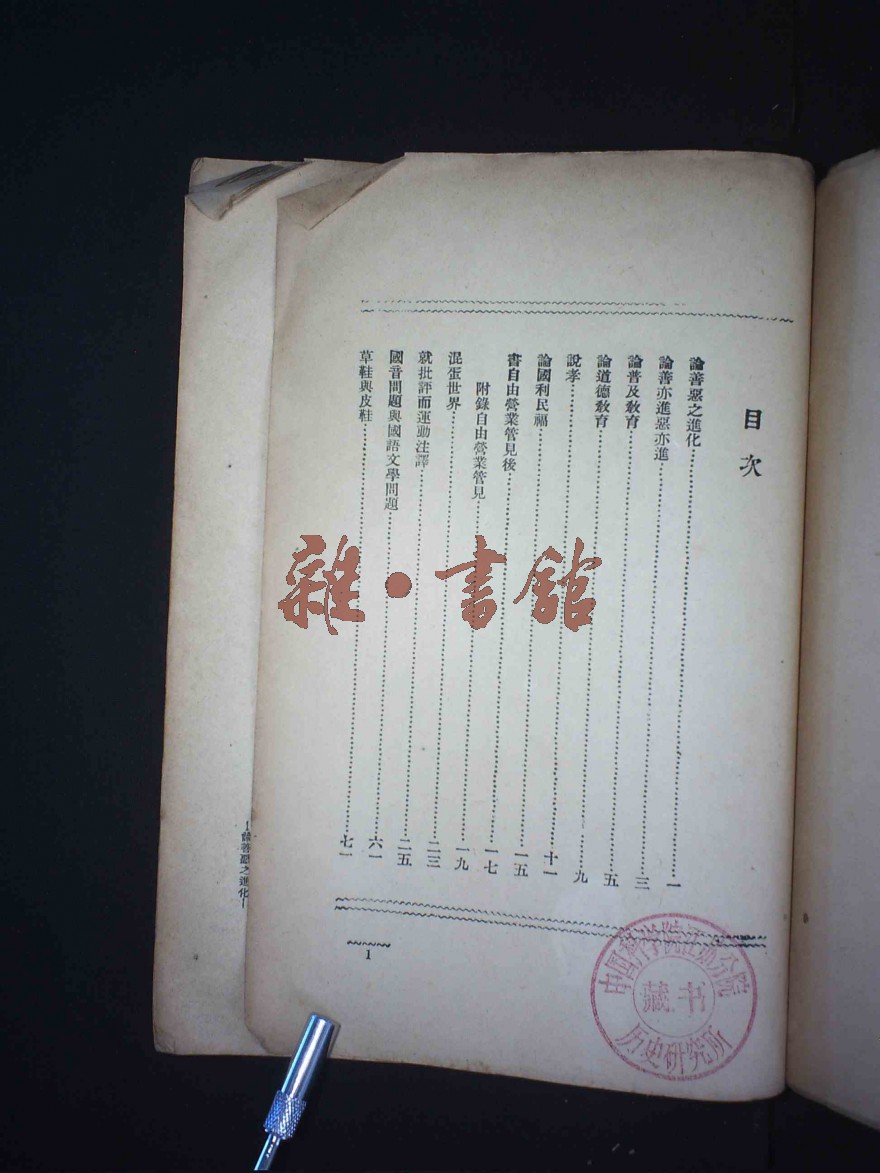 目次
論善惡之進化一
論善亦進惡亦進三
論普及敎育五
論道德敎育九
說孝十一
論國利民福一五
書自由營業管見後一七
附錄自由營業管見一九
混蛋世界二三
就批評而運動注譯二五
國音問題與國語文學問題六一
草鞋與皮鞋七一
1
論善惡之進化
雜·書館
中国科学院江苏分院
藏书
历史研究所